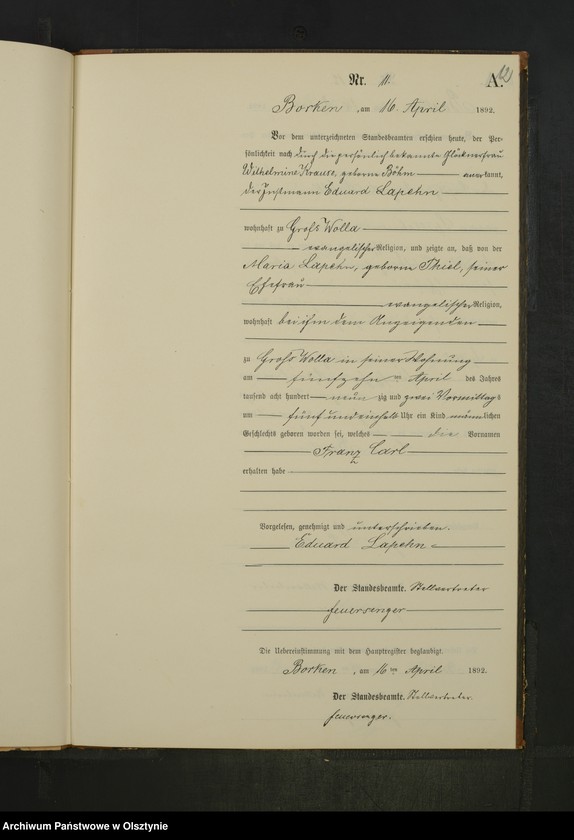 12
Nr. 11. A.
Borken, am 16. April 1892.
Vor dem unterzeichneten Standesbeamten erschien heute, der Per-
sönlichkeit nach durch die persönlich bekannte Glöcknerfrau
Wilhelmine Krause, geborene Böhm anerkannt,
der Instmann Eduard Lapehn
wohnhaft zu Groß Wolla
evangelischer Religion, und zeigte an, daß von der
Maria Lapehn, geborene Thiel, seiner
Ehefrau
evangelischer Religion,
wohnhaft bei ihm dem Anzeigenden
zu Groß Wolla in seiner Wohnung
am fünfzehnten April des Jahres
tausend acht hundert neunzig und zwei Vormittags
um fünf und einhalb Uhr ein Kind männlichen
Geschlechts geboren worden sei, welches die Vornamen
Franz Carl
erhalten habe
Vorgelesen, genehmigt und unterschrieben.
Eduard Lapehn
Der Standesbeamte. Stellvertreter
Feuersenger
Die Uebereinstimmung mit dem Hauptregister beglaubigt.
Borken, am 16ten April 1892.
Der Standesbeamte. Stellvertreter
Feuersenger.
Archiwum Państwowe w Olsztynie